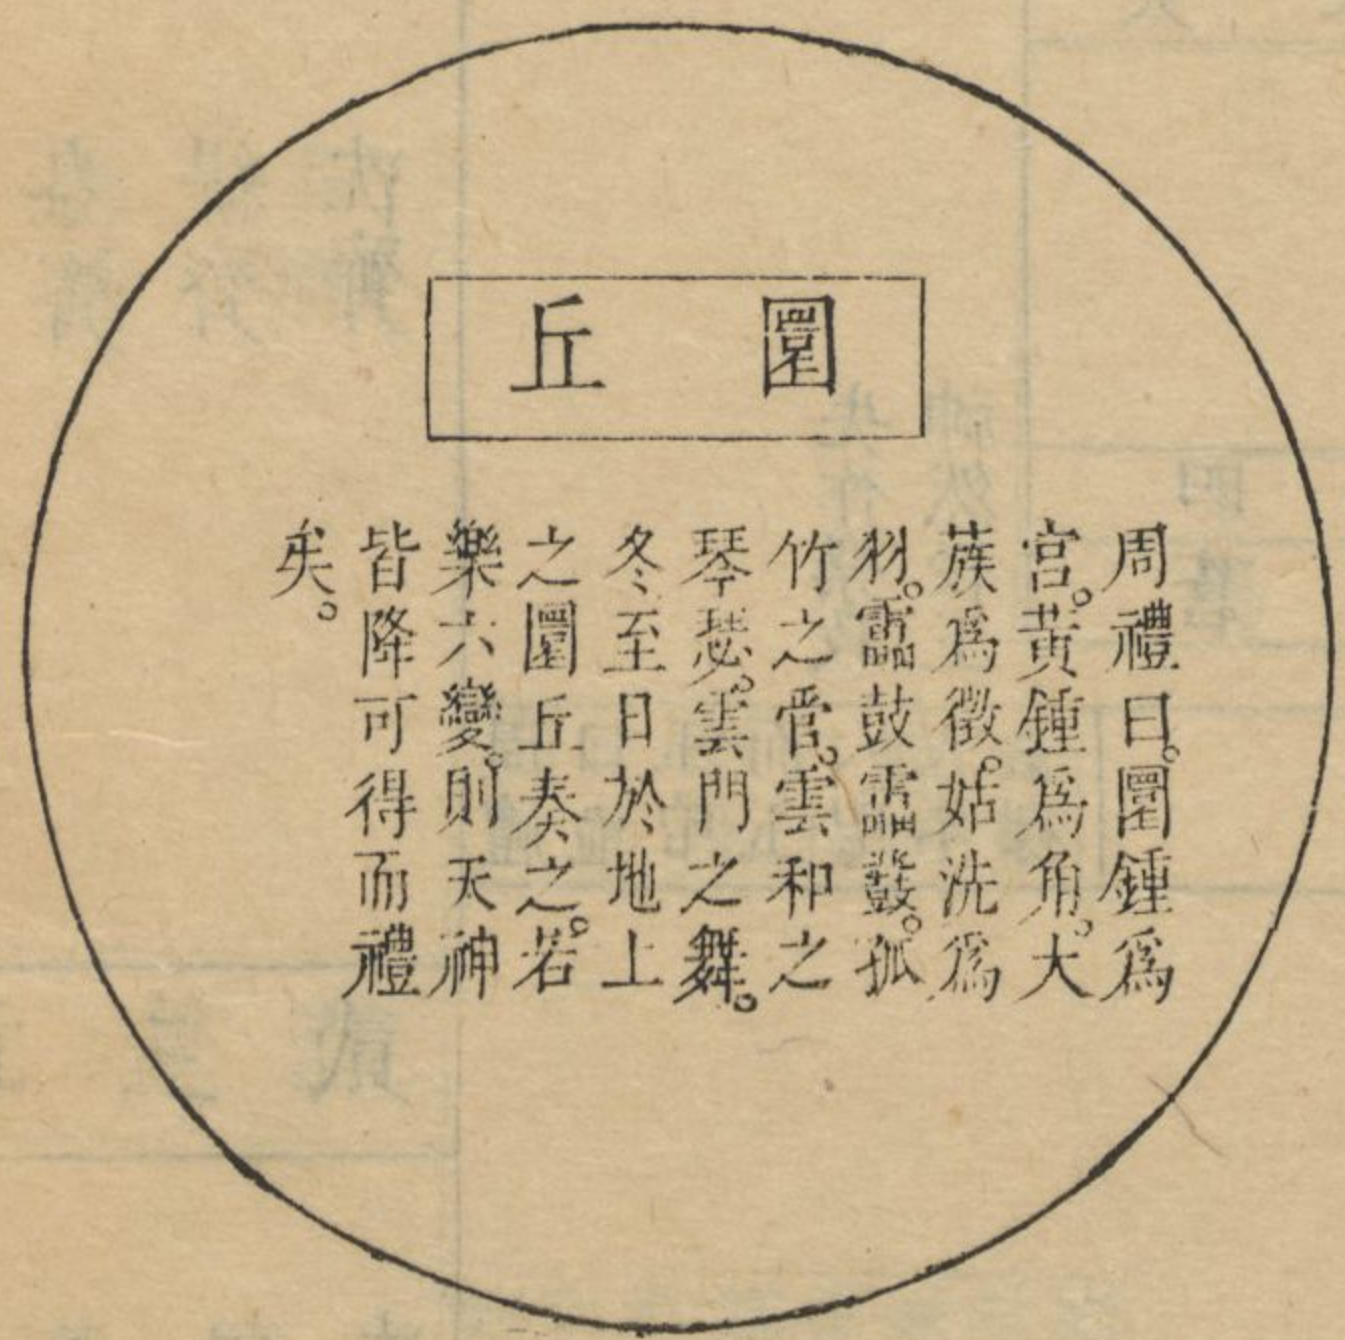 圜丘
周禮曰。圜鍾爲
宮。黃鍾爲角。大
蔟爲徵。姑洗爲
羽。靁鼓靁鼗。孤
竹之管。雲和之
琴瑟。雲門之舞。
冬至日於地上
之圜丘奏之。若
樂六變。則天神
皆降可得而禮
矣。